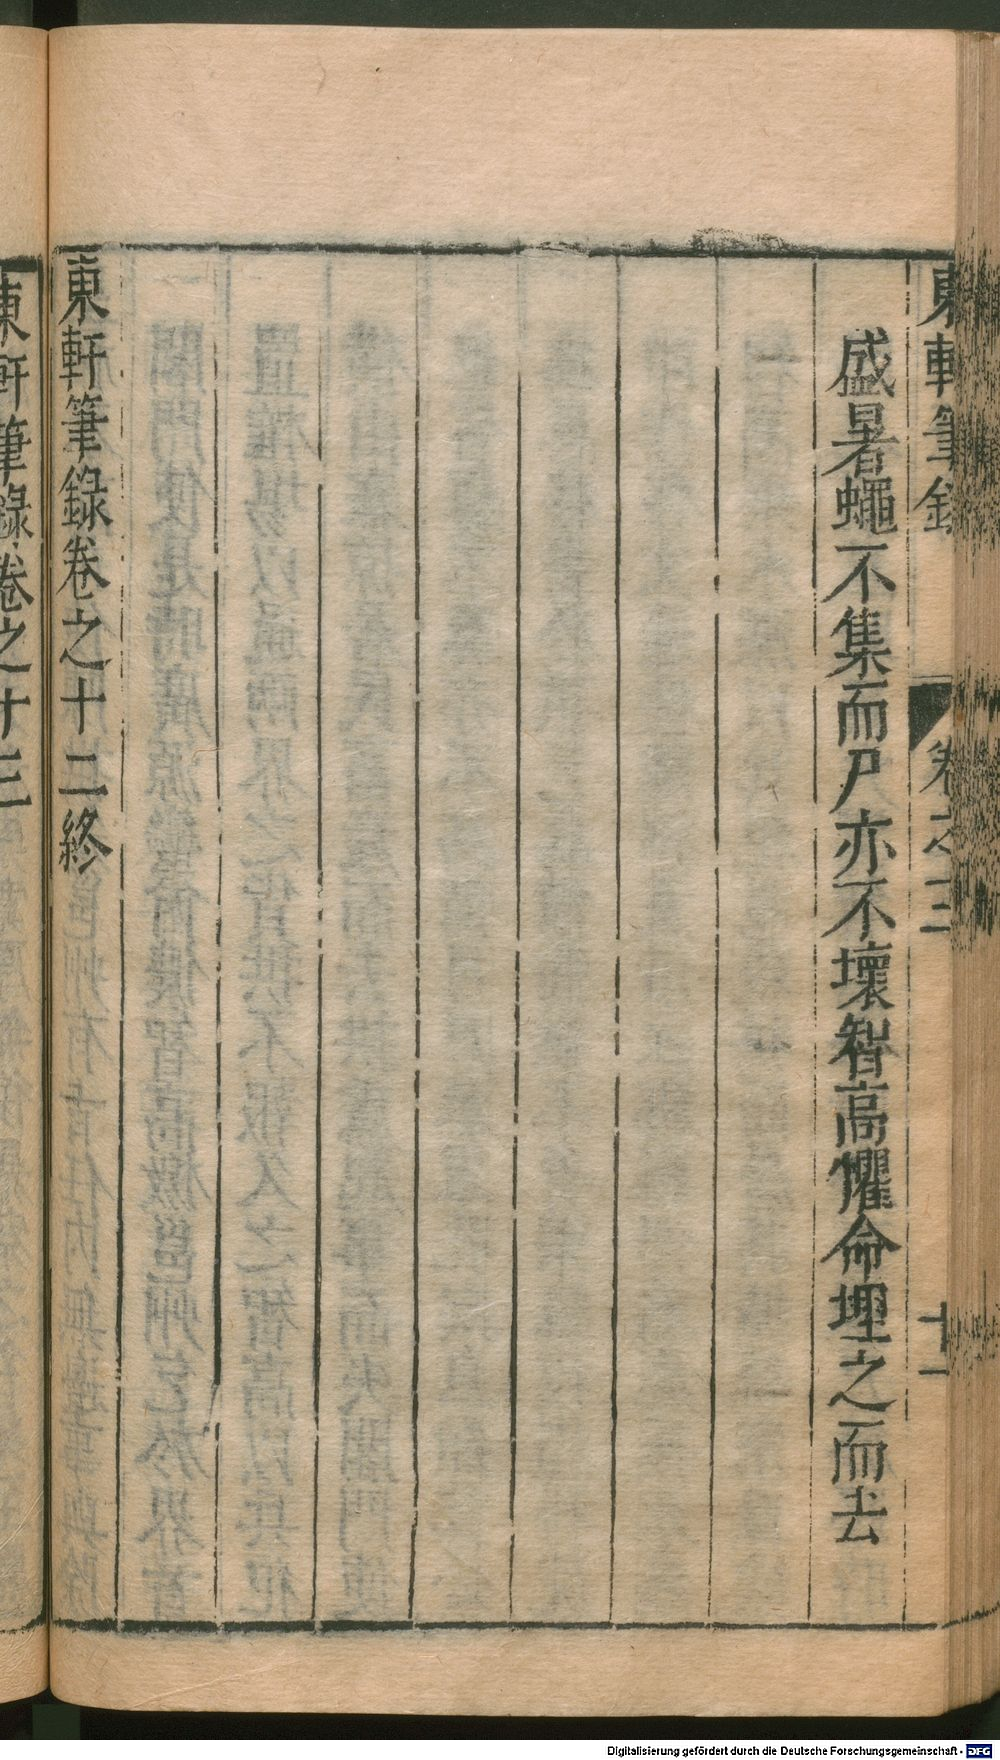 東軒筆錄 卷之三 十一
盛暑蠅不集而尸亦不壞智高懼命埋之而去
東軒筆錄卷之十二終
東軒筆錄卷之十三
Digitalisierung gefördert durch die Deutsche Forschungsgemeinschaft - DFG